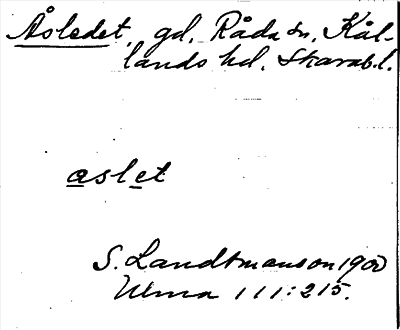 Åsledet gd. Råda sn, Kål-
lands hd. Skarab.l.
aslet
S. Landtmanson 1900
Ulma 111:215.